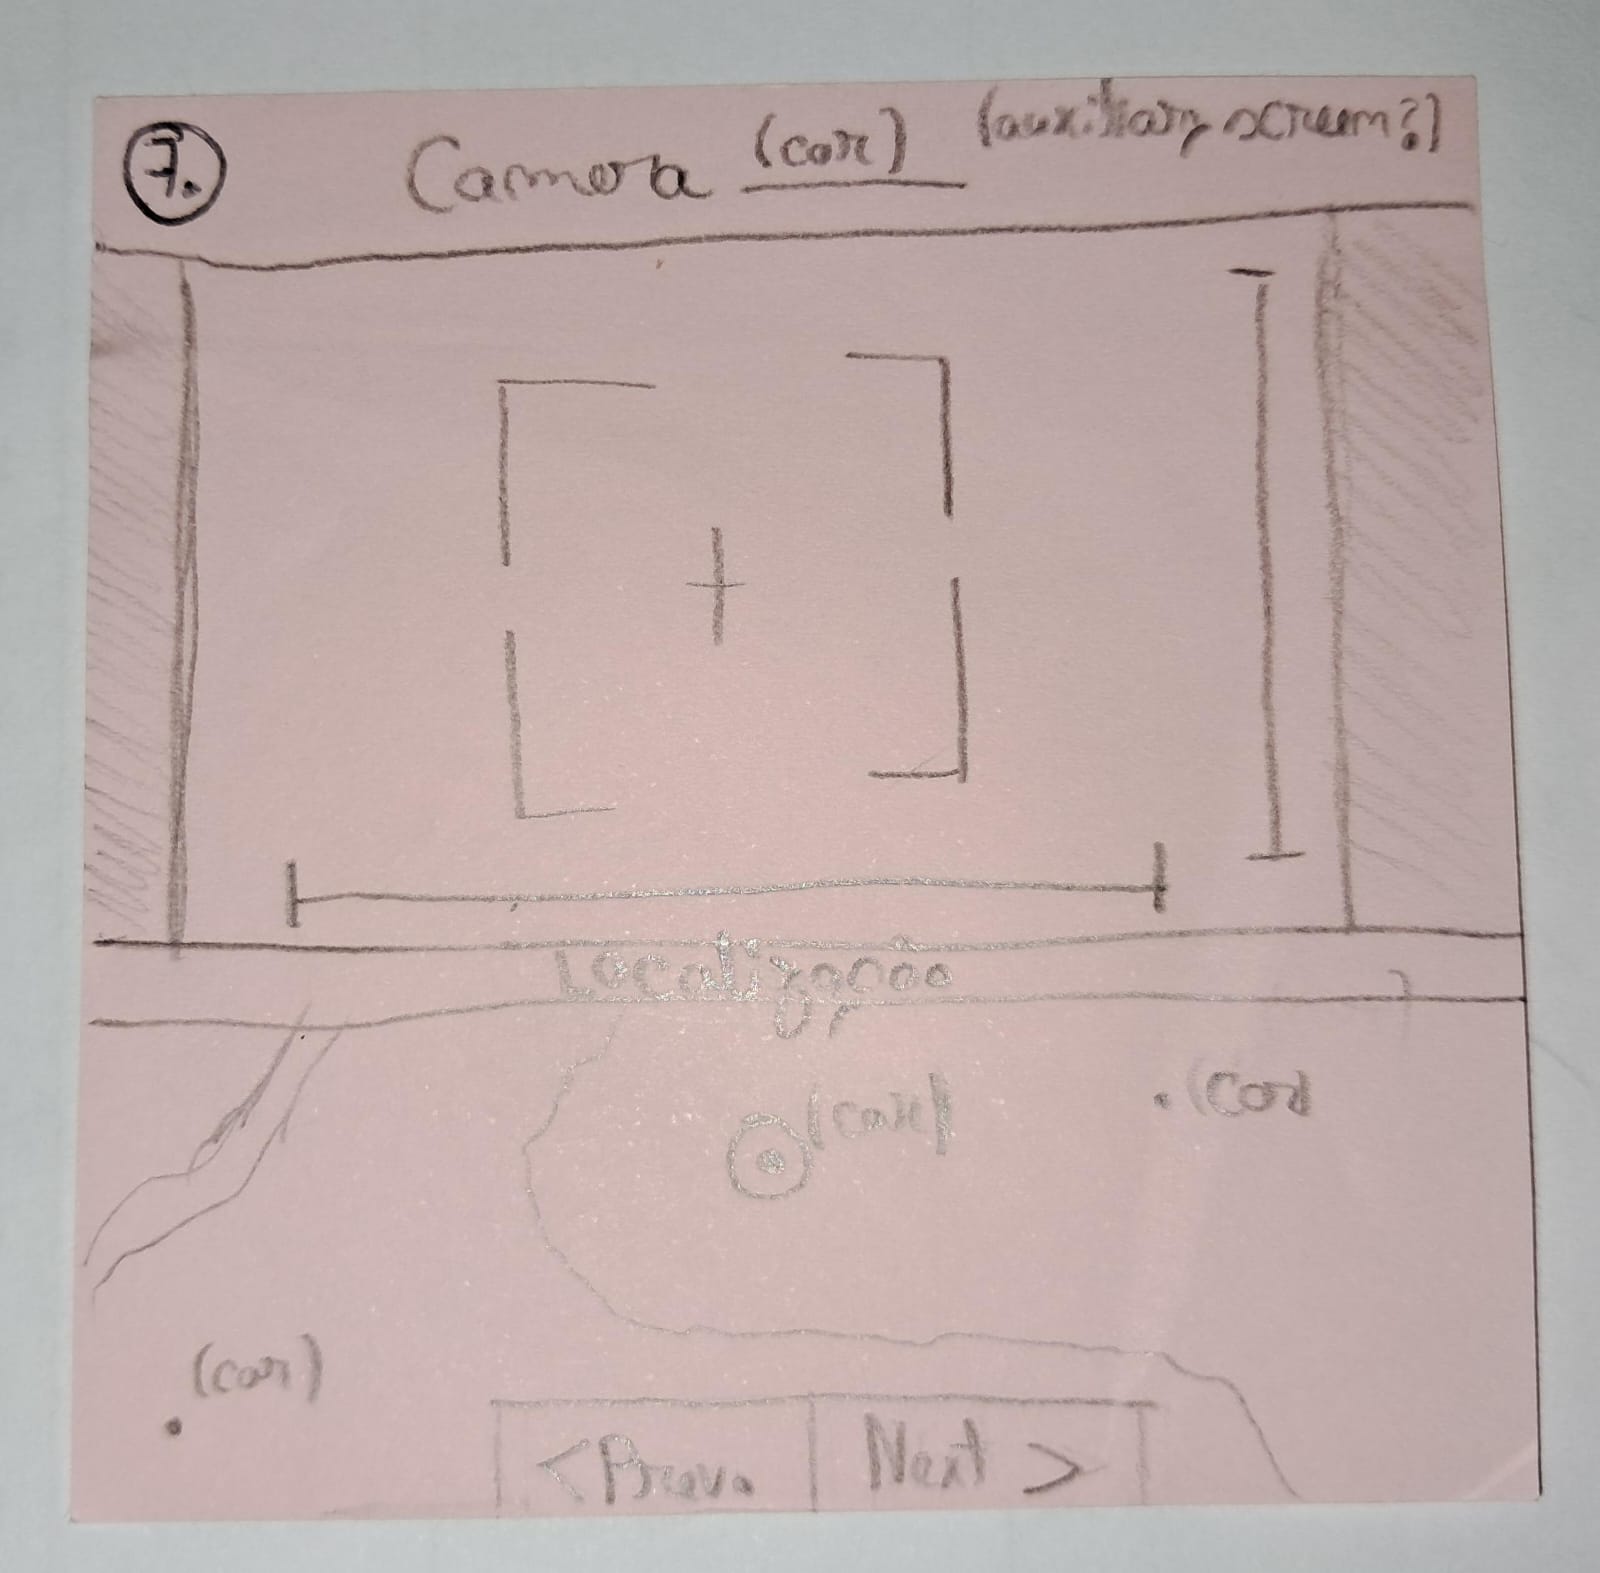 7. Camera (cor) (auxiliary screen?)
Localização
(cor)
(cor)
(cor)
< Prev. Next >